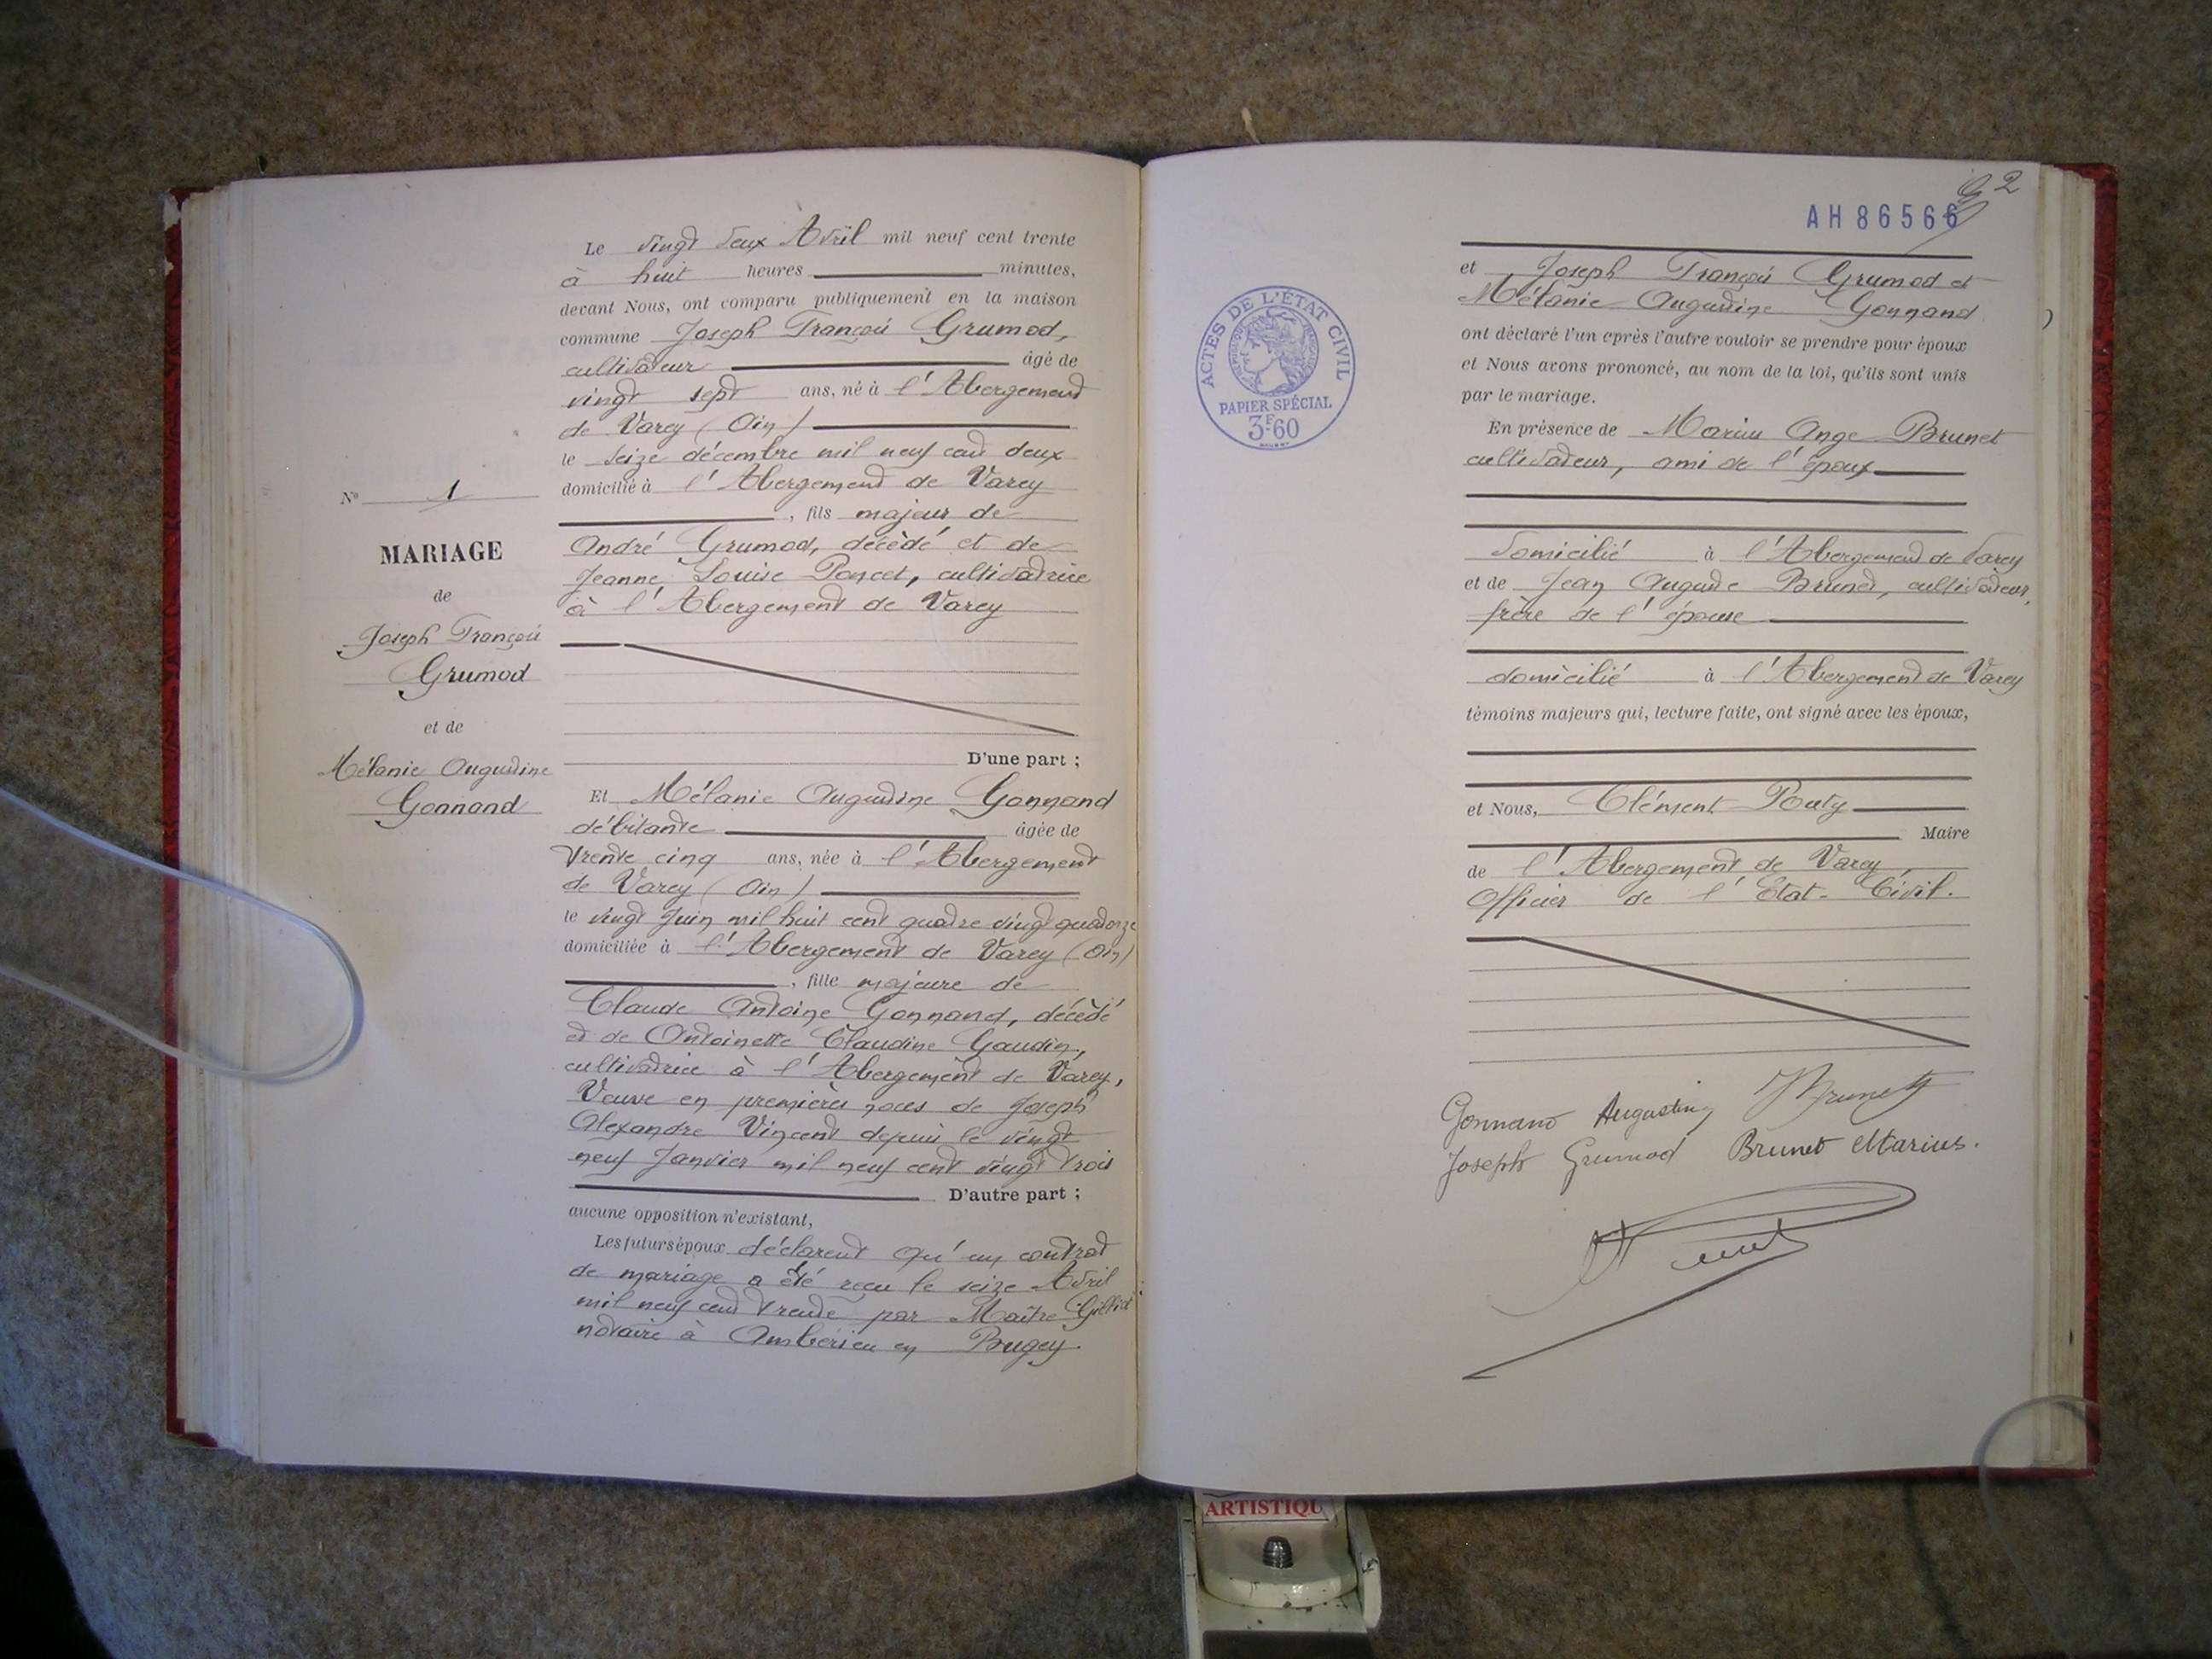 Le vingt deux Avril mil neuf cent trente
à huit heures minutes,
devant Nous, ont comparu publiquement en la maison
commune Joseph François Grumod,
cultivateur âgé de
vingt sept ans, né à l'Abergement
de Varey (Ain)
le seize décembre mil neuf cent deux
domicilié à l'Abergement de Varey
, fils majeur de
André Grumod, décédé et de
Jeanne Louise Poncet, cultivatrice
à l'Abergement de Varey
N° 1
MARIAGE
de
Joseph François
Grumod
et de
Mélanie Augustine
Gonnand
D'une part ;
Et Mélanie Augustine Gonnand
débitante âgée de
trente cinq ans, née à l'Abergement
de Varey (Ain)
le vingt Juin mil huit cent quatre vingt quatorze
domiciliée à l'Abergement de Varey (Ain)
, fille majeure de
Claude Antoine Gonnand, décédé
et de Antoinette Claudine Gaudin,
cultivatrice à l'Abergement de Varey,
Veuve en premières noces de Joseph
Alexandre Vincent depuis le vingt
neuf Janvier mil neuf cent vingt trois
D'autre part ;
aucune opposition n'existant,
Les futurs époux déclarent qu'un contrat
de mariage a été reçu le seize Avril
mil neuf cent trente par Maître
notaire à Ambérieu en Bugey
2
AH 86566
ACTES DE L'ÉTAT CIVIL
RÉPUBLIQUE FRANÇAISE
PAPIER SPÉCIAL
3F.60
et Joseph François Grumod et
Mélanie Augustine Gonnand
ont déclaré l'un après l'autre vouloir se prendre pour époux
et Nous avons prononcé, au nom de la loi, qu'ils sont unis
par le mariage.
En présence de Marius Ange Brunet
cultivateur, ami de l'époux
domicilié à l'Abergement de Varey
et de Jean Auguste Brunet, cultivateur,
frère de l'épouse
domicilié à l'Abergement de Varey
témoins majeurs qui, lecture faite, ont signé avec les époux,
et Nous, Clément Pouty
Maire
de l'Abergement de Varey
Officier de l'Etat-Civil.
Gonnand Augustine Brunet
Joseph Grumod Brunet Marius.
ARTISTIQU